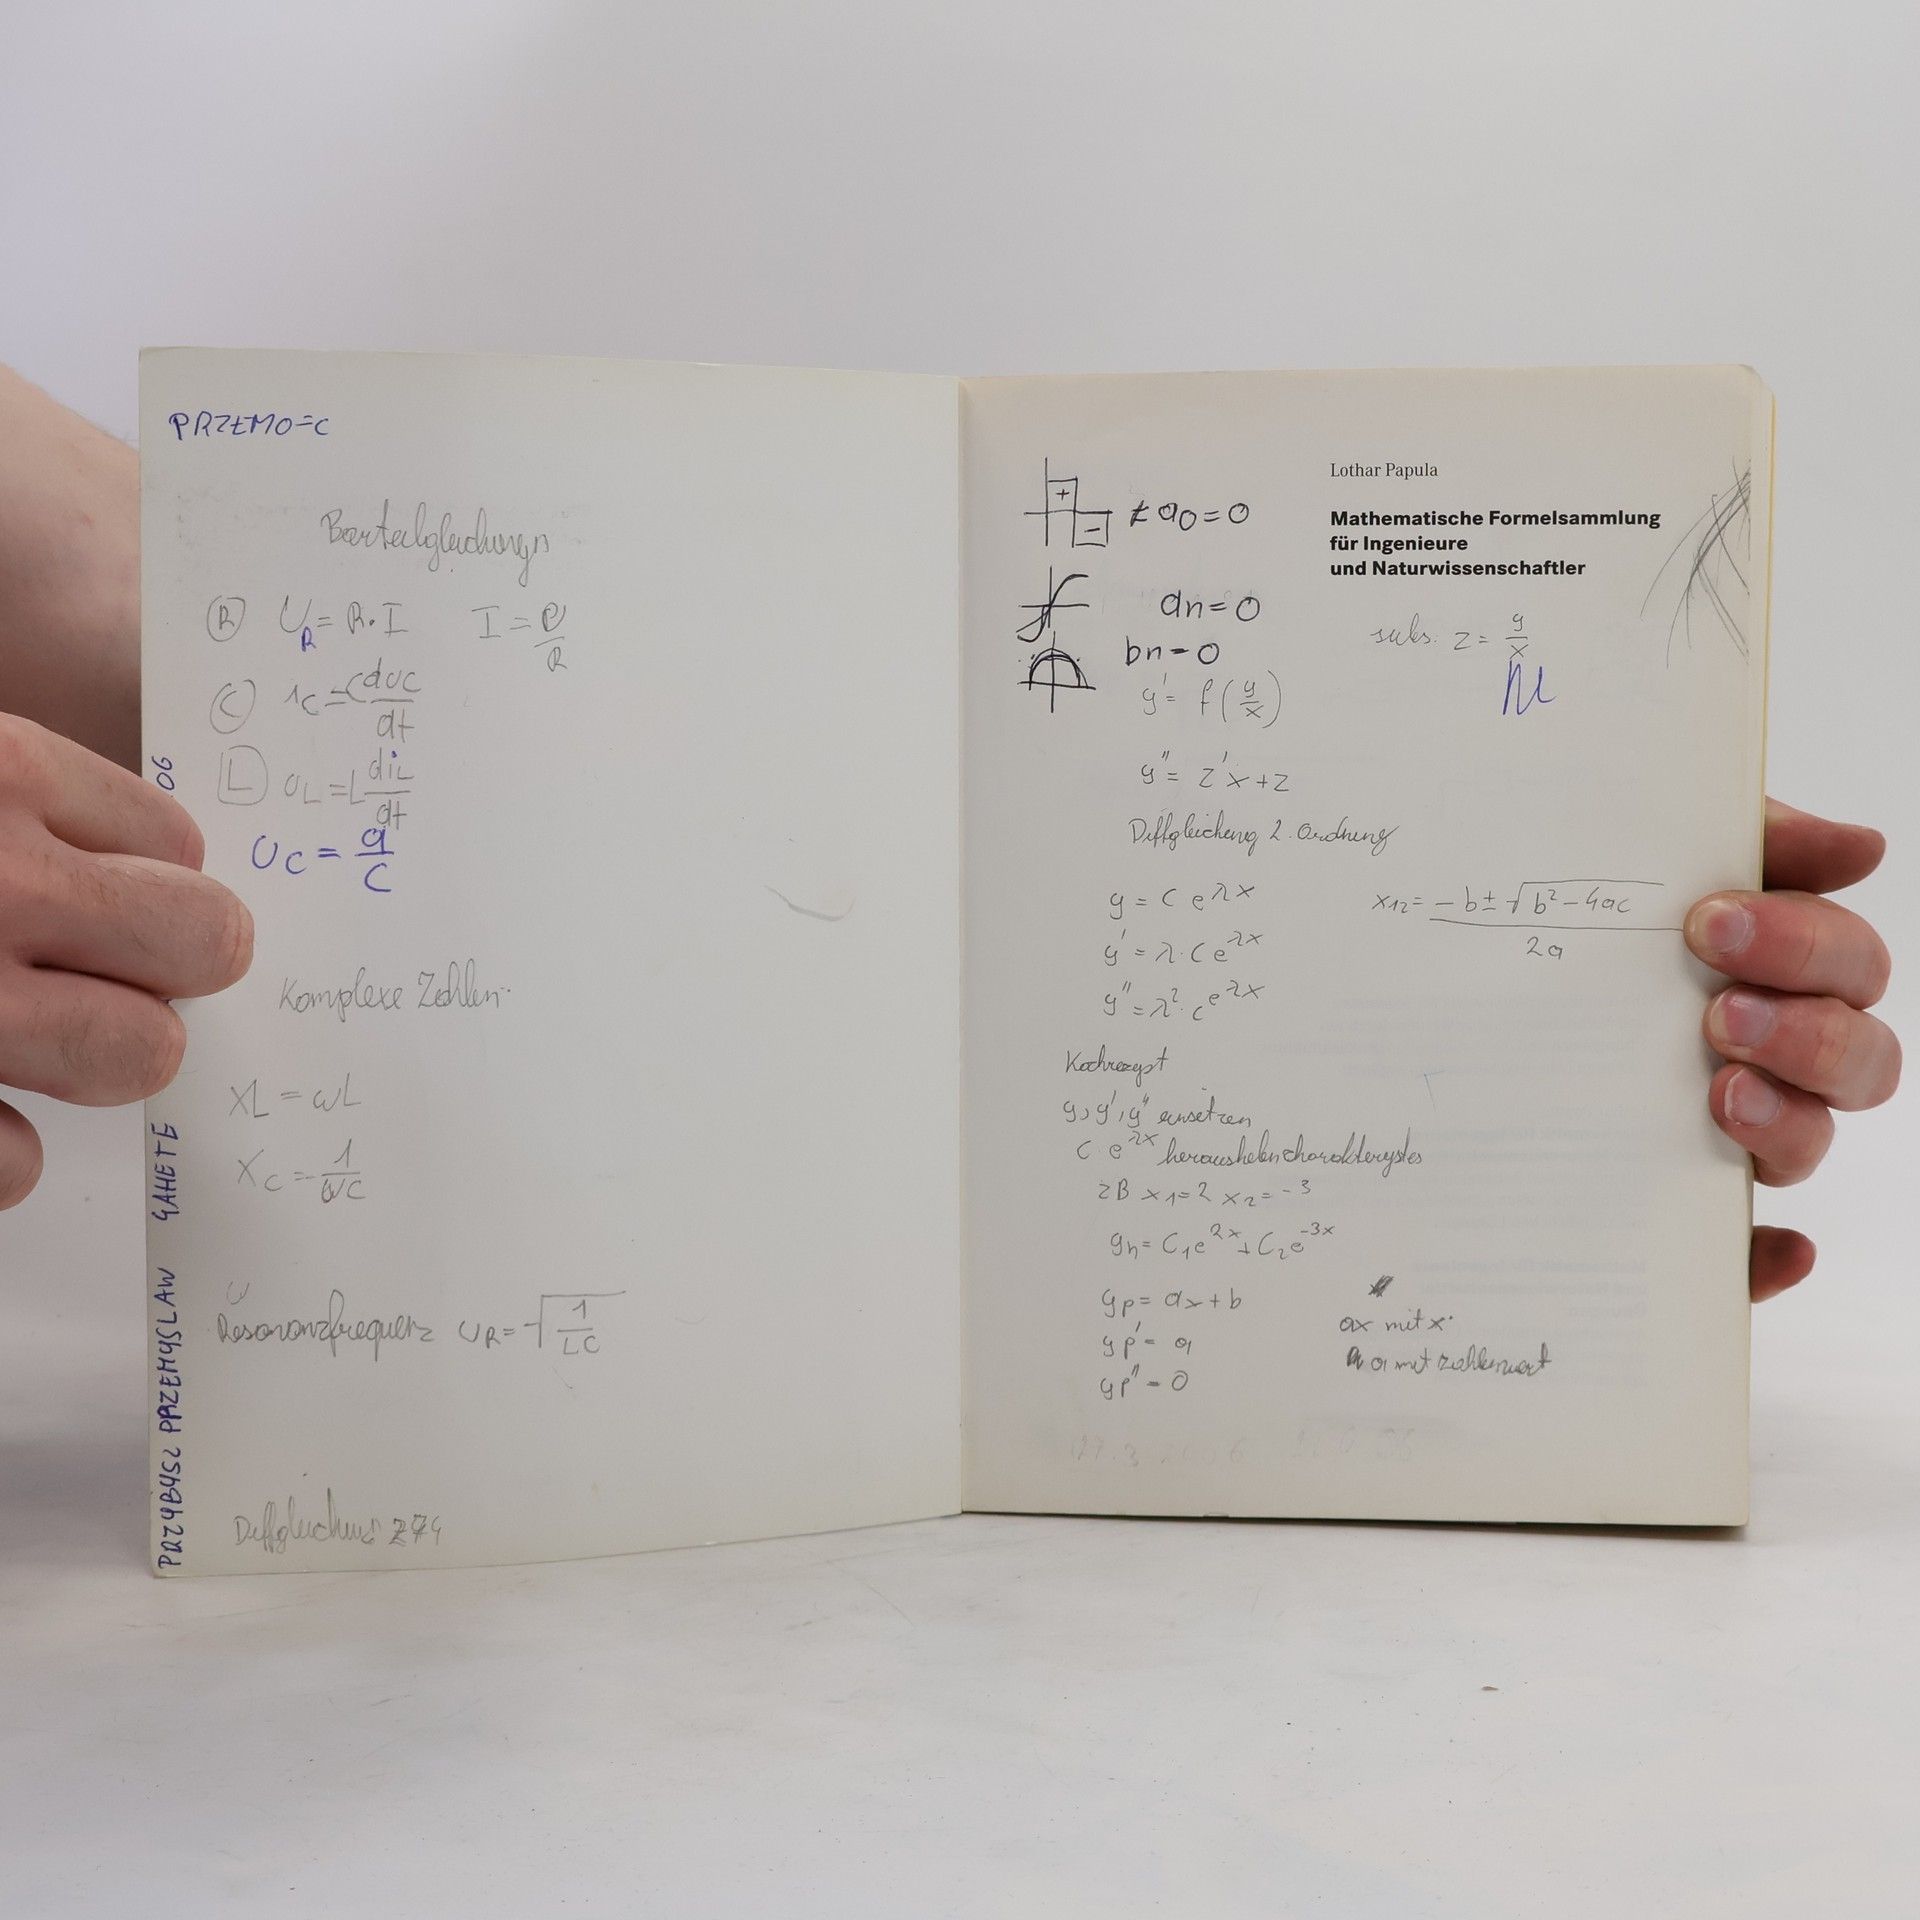 PRZEMO=C
Bauteilgleichungen
R U_R = R·I I = U/R
C i_C = C duc/dt
L U_L = L diL/dt
U_C = q/C
Komplexe Zahlen
XL = ωL
X_C = 1/ωC
ω
Resonanzfrequenz ω_R = √(1/LC)
Diffgleichung
PRZYBYSZ PRZEMYSLAW GAHETE 06
Lothar Papula
Mathematische Formelsammlung
für Ingenieure
und Naturwissenschaftler
+
−
a0 = 0
an = 0
bn = 0
subs. z = y/x
y' = f(y/x)
y'' = z'x + z
Diffgleichung 2. Ordnung
y = C e^λx
y' = λ·C e^λx
y'' = λ²·C e^λx
x12 = −b ± √(b² − 4ac) / 2a
Kochrezept
y, y', y'' einsetzen
C e^λx herausheben charakterystes
zB x1=2 x2=-3
yh = C1e^2x + C2e^-3x
yp = ax + b
yp' = a
yp'' = 0
ax mit x
a mit zahlenwert
27.3.2006